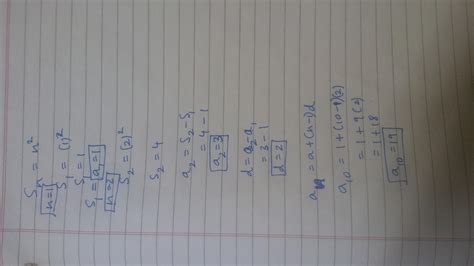 Sₙ = n²
n=1
S₁ = (1)²
S₁ = 1
S₁ = a₁ = 1
n=2
S₂ = (2)²
S₂ = 4
a₂ = S₂ - S₁
= 4 - 1
a₂ = 3
d = a₂ - a₁
= 3 - 1
d = 2
aₙ = a + (n-1)d
a₁₀ = 1 + (10-1)(2)
= 1 + 9(2)
= 1 + 18
a₁₀ = 19